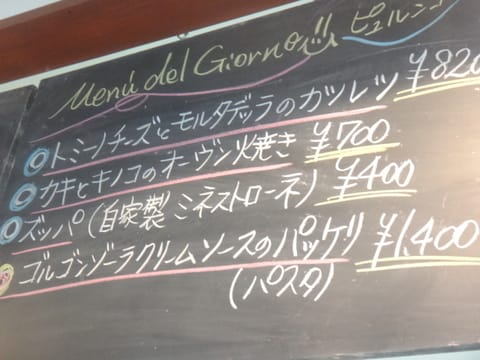 Menú del Giorno ピュルンゴ
トミーノチーズとモルタデッラのカツレツ ¥820
カキとキノコのオーヴン焼き ¥700
ズッパ(自家製ミネストローネ) ¥400
ゴルゴンゾーラクリームソースのパッケリ ¥1,400
(パスタ)